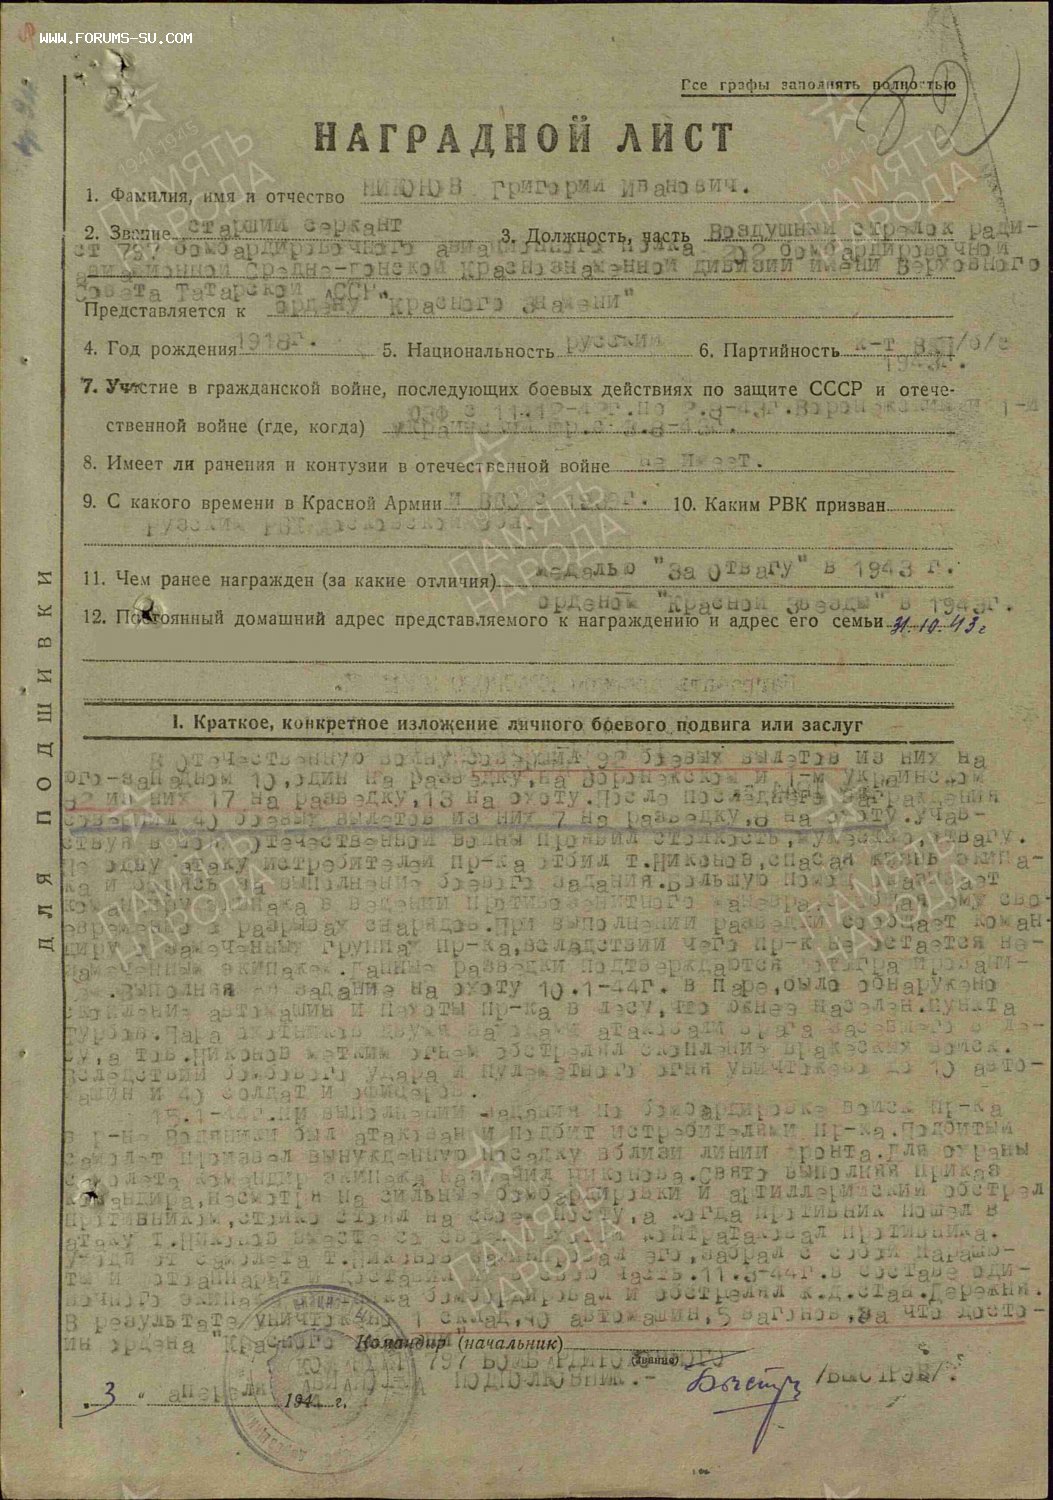 WWW.FORUMS-SU.COM
Все графы заполнять полностью
НАГРАДНОЙ ЛИСТ
1. Фамилия, имя и отчество НИКОНОВ Григорий Иванович.
2. Звание старший сержант 3. Должность, часть Воздушный стрелок ради-
ст 797 бомбардировочного авиационного полка 202 бомбардировочной
авиационной Средне-Донской Краснознаменной дивизии имени Верховного
Совета Татарской АССР.
Представляется к ордену "Красного Знамени"
4. Год рождения 1918г. 5. Национальность русский 6. Партийность к-т ВКП/б/с
1943г.
7. Участие в гражданской войне, последующих боевых действиях по защите СССР и отече-
ЮЗФ с 11.12-42г. по 2.8-43г. Воронежский и 1-й
ственной войне (где, когда) Украинский фр. с
8. Имеет ли ранения и контузии в отечественной войне не имеет.
9. С какого времени в Красной Армии 10. Каким РВК призван
11. Чем ранее награжден (за какие отличия) медалью "За Отвагу" в 1943 г.
орденом "Красной Звезды" в 1943г.
12. Постоянный домашний адрес представляемого к награждению и адрес его семьи 31.10.43г
I. Краткое, конкретное изложение личного боевого подвига или заслуг
В отечественную войну совершил 92 боевых вылетов из них на
юго-западном 10, один на разведку, на Воронежском и 1-м украинском
82 из них 17 на разведку, 13 на охоту. После последнего награждения
совершил 40 боевых вылетов из них 7 на разведку, 8 на охоту. Учав-
ствуя в боях отечественной войны проявил стойкость, мужество, отвагу.
Не одну атаку истребителей пр-ка отбил т.Никонов, спасая жизнь экипа-
жа и борясь за выполнение боевого задания. Большую помощь оказывает
командиру экипажа в ведении противозенитного маневра, сообщая ему сво-
евременно о разрывах снарядов. При выполнении разведки сообщает коман-
диру о замеченных группах пр-ка, вследствии чего пр-к не остается не-
замеченным экипажем. Данные разведки подтверждаются фотографировани-
Выполняя задание на охоту 10.1-44г. в паре, было обнаружено
скопление автомашин и пехоты пр-ка в лесу, что южнее населен. пункта
Турбов. Пара охотников двумя заходами атаковали врага засевшего в ле-
су, а тов. Никонов метким огнем обстрелял скопление вражеских войск.
Вследствии бомбового удара и пулеметного огня уничтожено до 10 авто-
машин и 40 солдат и офицеров.
15.1-44г. при выполнении задания по бомбардировке войск пр-ка
в р-не Водяники был атакован и подбит истребителями пр-ка. Подбитый
самолет произвел вынужденную посадку вблизи линии фронта. Для охраны
самолета командир экипажа назначил Никонова. Свято выполняя приказ
командира, несмотря на сильные бомбардировки и артиллерийский обстрел
противником, стойко стоял на своем посту, а когда противник пошел в
атаку т.Никонов вместе со своей пехотой контратаковал противника.
Уходя от самолета т.Никонов его, забрал с собой парашю-
ты и фотоаппарат и доставил их в свою часть. 11.3-44г. в составе оди-
ночного экипажа бомбардировал и обстрелял ж.д. стан. Деражня.
В результате уничтожено 1 склад, 40 автомашин, 5 вагонов, за что досто-
ин ордена "Красного Знамени"
Командир (начальник)
КОМАНДИР 797 БОМБАРДИРОВОЧНОГО
(звание)
АВИАПОЛКА ПОДПОЛКОВНИК.- Быстров /БЫСТРОВ/.
"3" апреля 1944 г.
ДЛЯ ПОДШИВКИ
ПАМЯТЬ НАРОДА
1941-1945